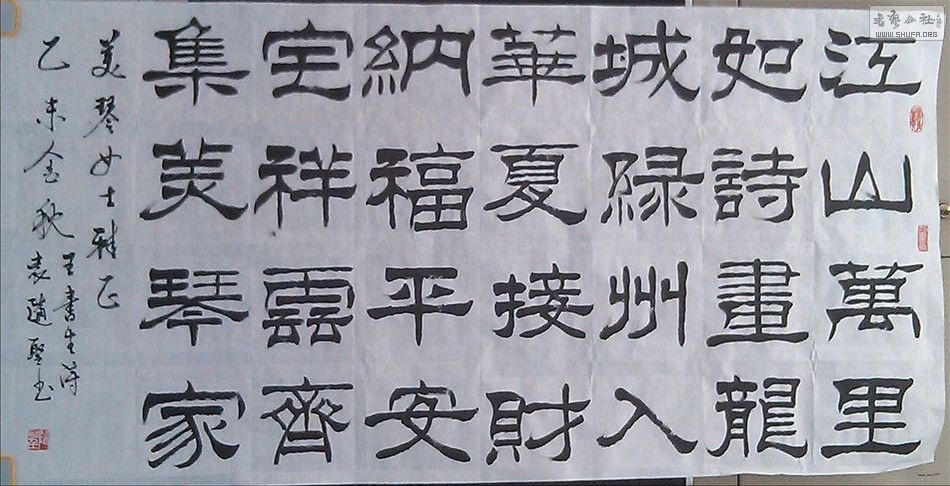 江山萬里
如詩畫龍
城綠州入
華夏接財
納福平安
宅祥雲齊
集美琴家
美琴女士雅正
乙未金秋
王書生詩
袁隨聖书
書藝公社
WWW.SHUFA.ORG